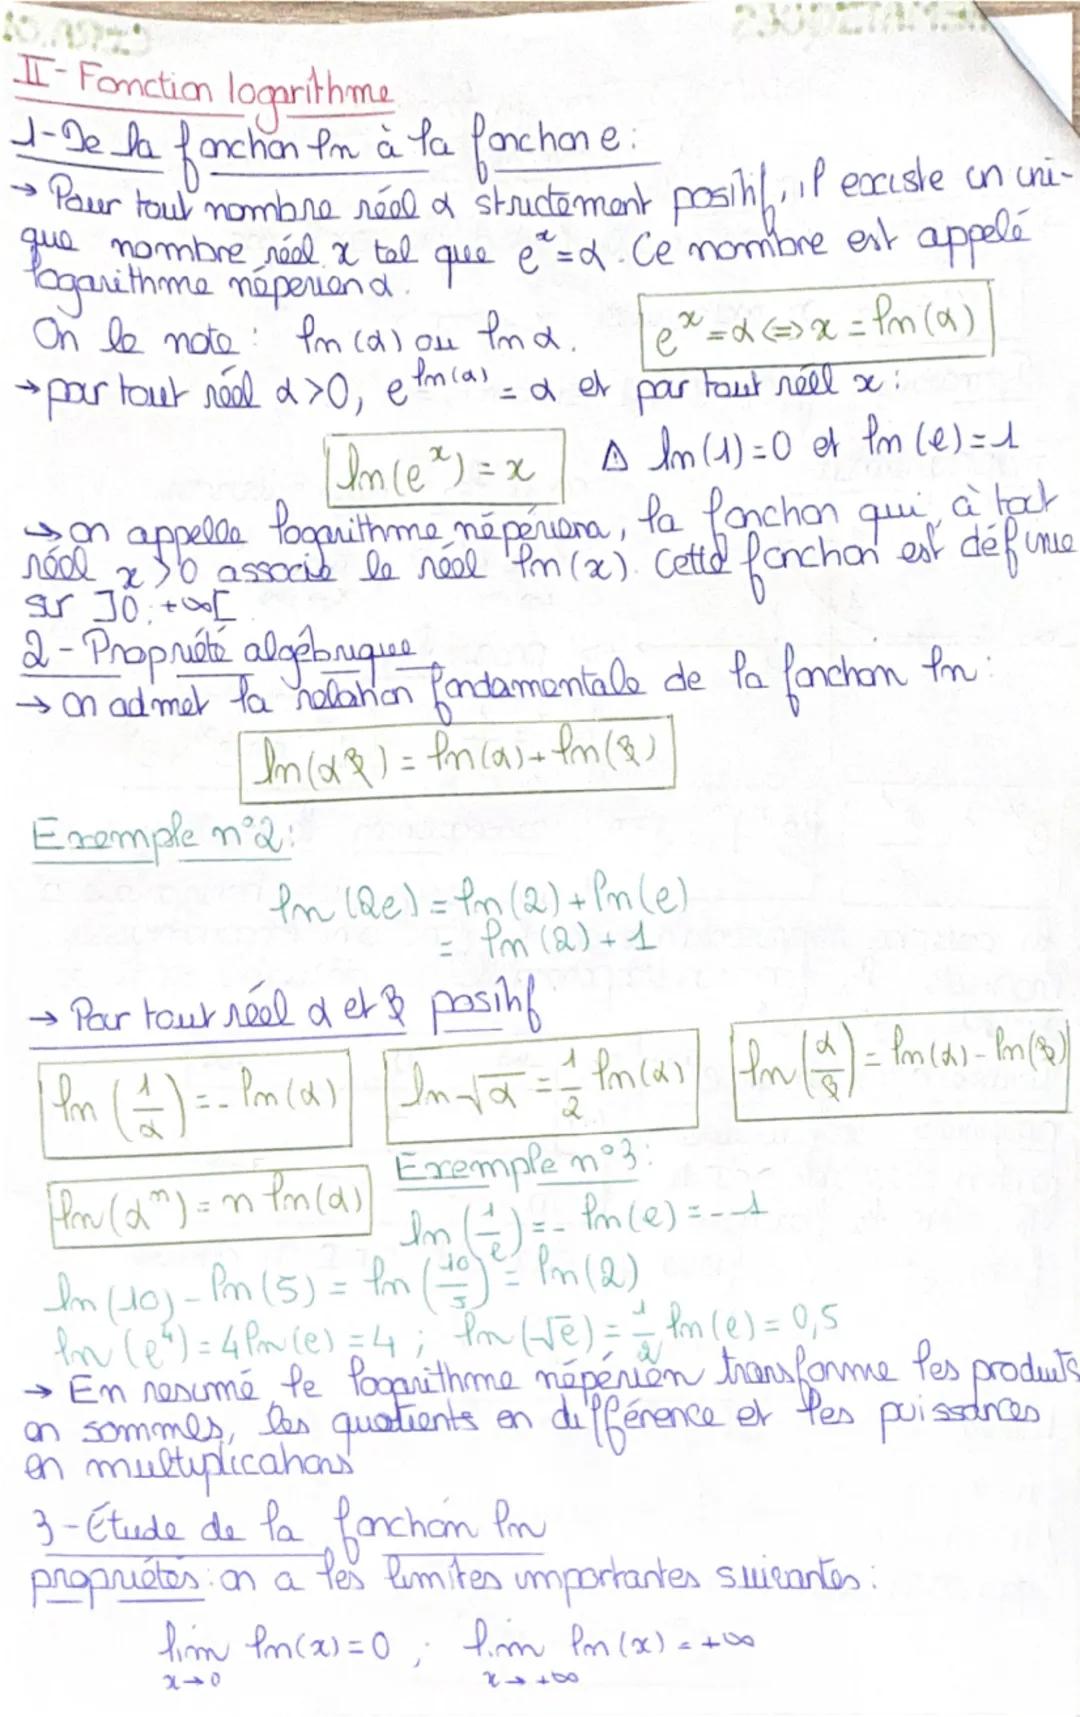 II - Fonction logarithme
1 - De la fonction ln à la fonction e :
→ Pour tout nombre réel α strictement positif, il existe un uni-
que nombre réel x tel que e^x = α. Ce nombre est appelé
logarithme népérien α.
On le note : ln(α) ou ln α.
e^x = α ⇔ x = ln(α)
→ pour tout réel α > 0, e^ln(α) = α et pour tout réel x :
ln(e^x) = x
⚠ ln(1) = 0 et ln(e) = 1
→ on appelle logarithme népérien, la fonction qui, à tout
réel x > 0 associe le réel ln(x). Cette fonction est définie
sur ]0 ; +∞[
2 - Propriété algébrique
→ on admet la relation fondamentale de la fonction ln :
ln(αβ) = ln(α) + ln(β)
Exemple n°2 :
ln(2e) = ln(2) + ln(e)
= ln(2) + 1
→ Pour tout réel α et β positif
ln(1/α) = - ln(α)
ln √α = 1/2 ln(α)
ln(α/β) = ln(α) - ln(β)
ln(α^n) = n ln(α)
Exemple n°3 :
ln(1/e) = - ln(e) = - 1
ln(10) - ln(5) = ln(10/5) = ln(2)
ln(e^4) = 4 ln(e) = 4 ; ln(√e) = 1/2 ln(e) = 0,5
→ En resumé le logarithme népérien transforme les produits
en sommes, les quotients en différence et les puissances
en multiplications
3 - Étude de la fonction ln
propriétés : on a les limites importantes suivantes :
lim ln(x) = 0 ; lim ln(x) = +∞
x→0 x→+∞